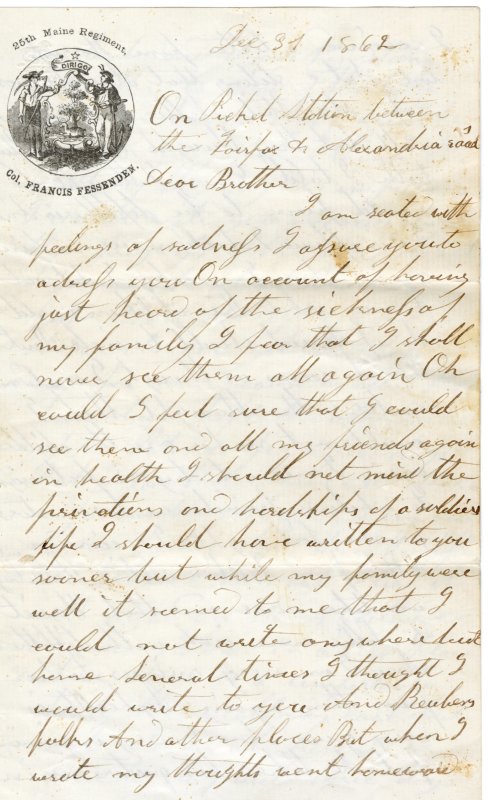 25th Maine Regiment,
DIRIGO
Col. FRANCIS FESSENDEN.
Dec 31 1862
On Picket Station between
the Fairfax & Alexandria road
Dear Brother
I am seated with
feelings of sadness I assure you to
adress you On account of having
just heard of the sickness of
my family I fear that I shall
never see them all again Oh
could I feel sure that I could
see them and all my friends again
in health I should not mind the
privations and hardships of a soldiers
life I should have written to you
sooner but while my family were
well it seemed to me that I
could not write anywhere but
home Several times I thought I
would write to you And Reubens
folks And other places But when I
wrote my thoughts went homeward